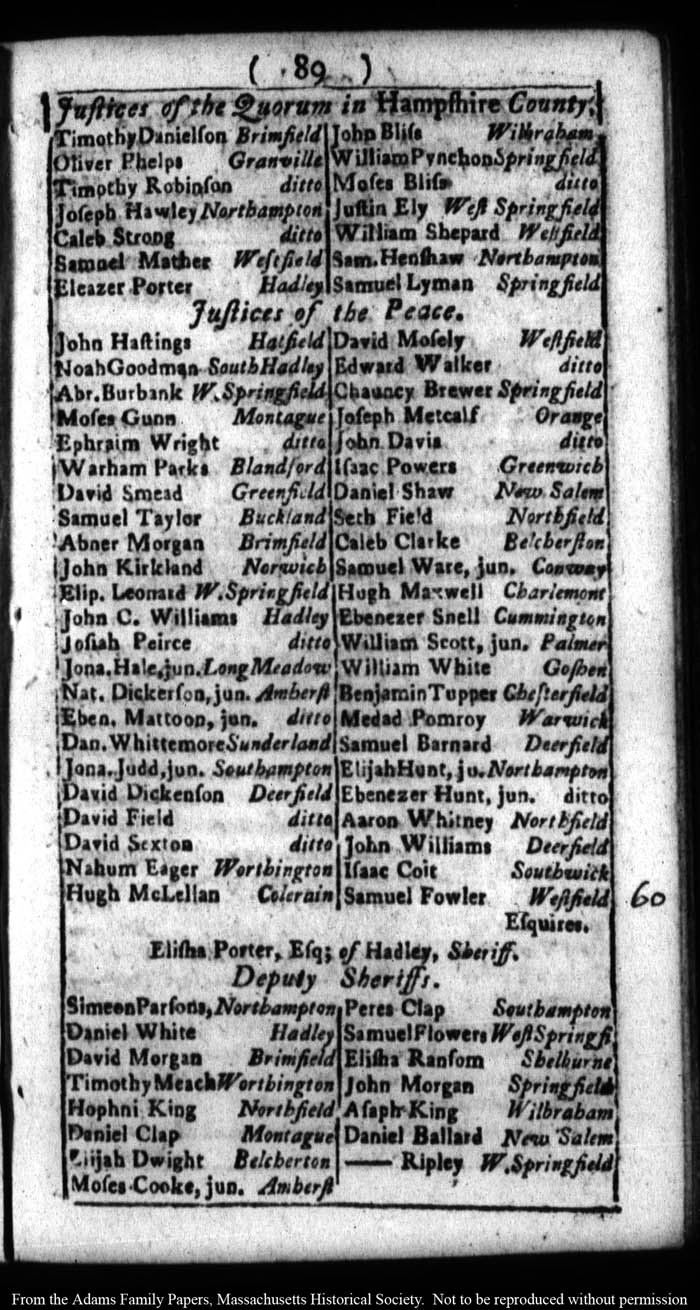 ( 89 )
Juſtices of the Quorum in Hampſhire County.
Timothy Danielſon Brimfield
Oliver Phelps Granville
Timothy Robinſon ditto
Joſeph Hawley Northampton
Caleb Strong ditto
Samuel Mather Weſtfield
Eleazer Porter Hadley
John Bliſs Wilbraham
William Pynchon Springfield
Moſes Bliſs ditto
Juſtin Ely Weſt Springfield
William Shepard Weſtfield
Sam. Henſhaw Northampton
Samuel Lyman Springfield
Juſtices of the Peace.
John Haſtings Hatfield
Noah Goodman South Hadley
Abr. Burbank W. Springfield
Moſes Gunn Montague
Ephraim Wright ditto
Warham Parks Blandford
David Smead Greenfield
Samuel Taylor Buckland
Abner Morgan Brimfield
John Kirkland Norwich
Elip. Leonard W. Springfield
John C. Williams Hadley
Joſiah Peirce ditto
Jona. Hale, jun. Long Meadow
Nat. Dickerſon, jun. Amherſt
Eben. Mattoon, jun. ditto
Dan. Whittemore Sunderland
Jona. Judd, jun. Southampton
David Dickenſon Deerfield
David Field ditto
David Sexton ditto
Nahum Eager Worthington
Hugh McLellan Colerain
David Moſely Weſtfield
Edward Walker ditto
Chauncy Brewer Springfield
Joſeph Metcalf Orange
John Davis ditto
Iſaac Powers Greenwich
Daniel Shaw New Salem
Seth Field Northfield
Caleb Clarke Belcherſton
Samuel Ware, jun. Conway
Hugh Maxwell Charlemont
Ebenezer Snell Cummington
William Scott, jun. Palmer
William White Goſhen
Benjamin Tupper Cheſterfield
Medad Pomroy Warwick
Samuel Barnard Deerfield
Elijah Hunt, ju. Northampton
Ebenezer Hunt, jun. ditto
Aaron Whitney Northfield
John Williams Deerfield
Iſaac Coit Southwick
Samuel Fowler Weſtfield
60
Eſquires.
Eliſha Porter, Eſq; of Hadley, Sheriff.
Deputy Sheriffs.
Simeon Parſons, Northampton
Daniel White Hadley
David Morgan Brimfield
Timothy Meach Worthington
Hophni King Northfield
Daniel Clap Montague
Elijah Dwight Belcherton
Moſes Cooke, jun. Amherſt
Peres Clap Southampton
Samuel Flowers Weſt Springfi
Eliſha Ranſom Shelburne
John Morgan Springfield
Aſaph King Wilbraham
Daniel Ballard New Salem
—— Ripley W. Springfield
From the Adams Family Papers, Massachusetts Historical Society. Not to be reproduced without permission